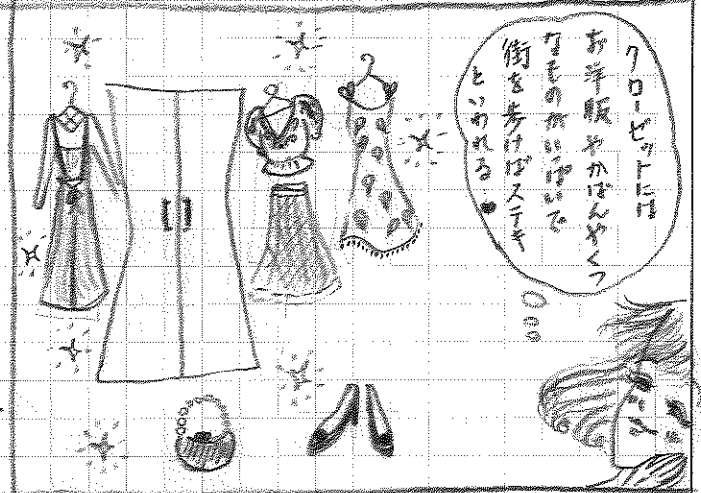 クローゼットには
お洋服やかばんやくつ
なものがいっぱいで
街を歩けばステキ
といわれる